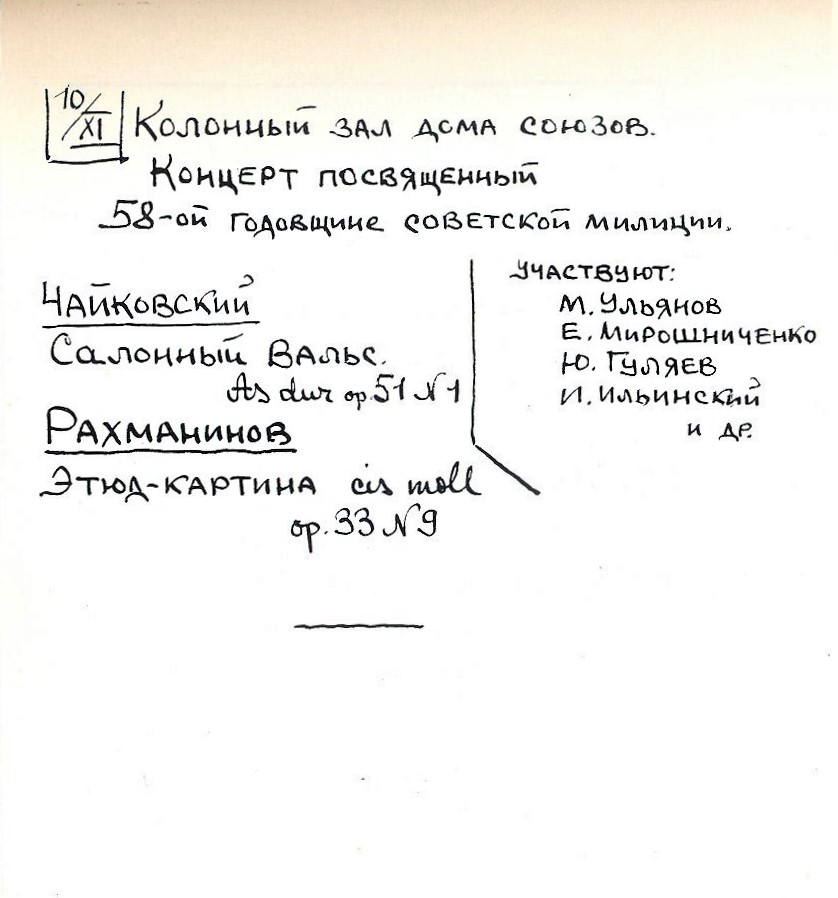 10/XI Колонный зал дома союзов.
Концерт посвященный
58-ой годовщине советской милиции.
Чайковский
Салонный вальс.
As dur op. 51 N 1
Рахманинов
Этюд-картина cis moll
op. 33 N 9
Участвуют:
М. Ульянов
Е. Мирошниченко
Ю. Гуляев
И. Ильинский
и др.